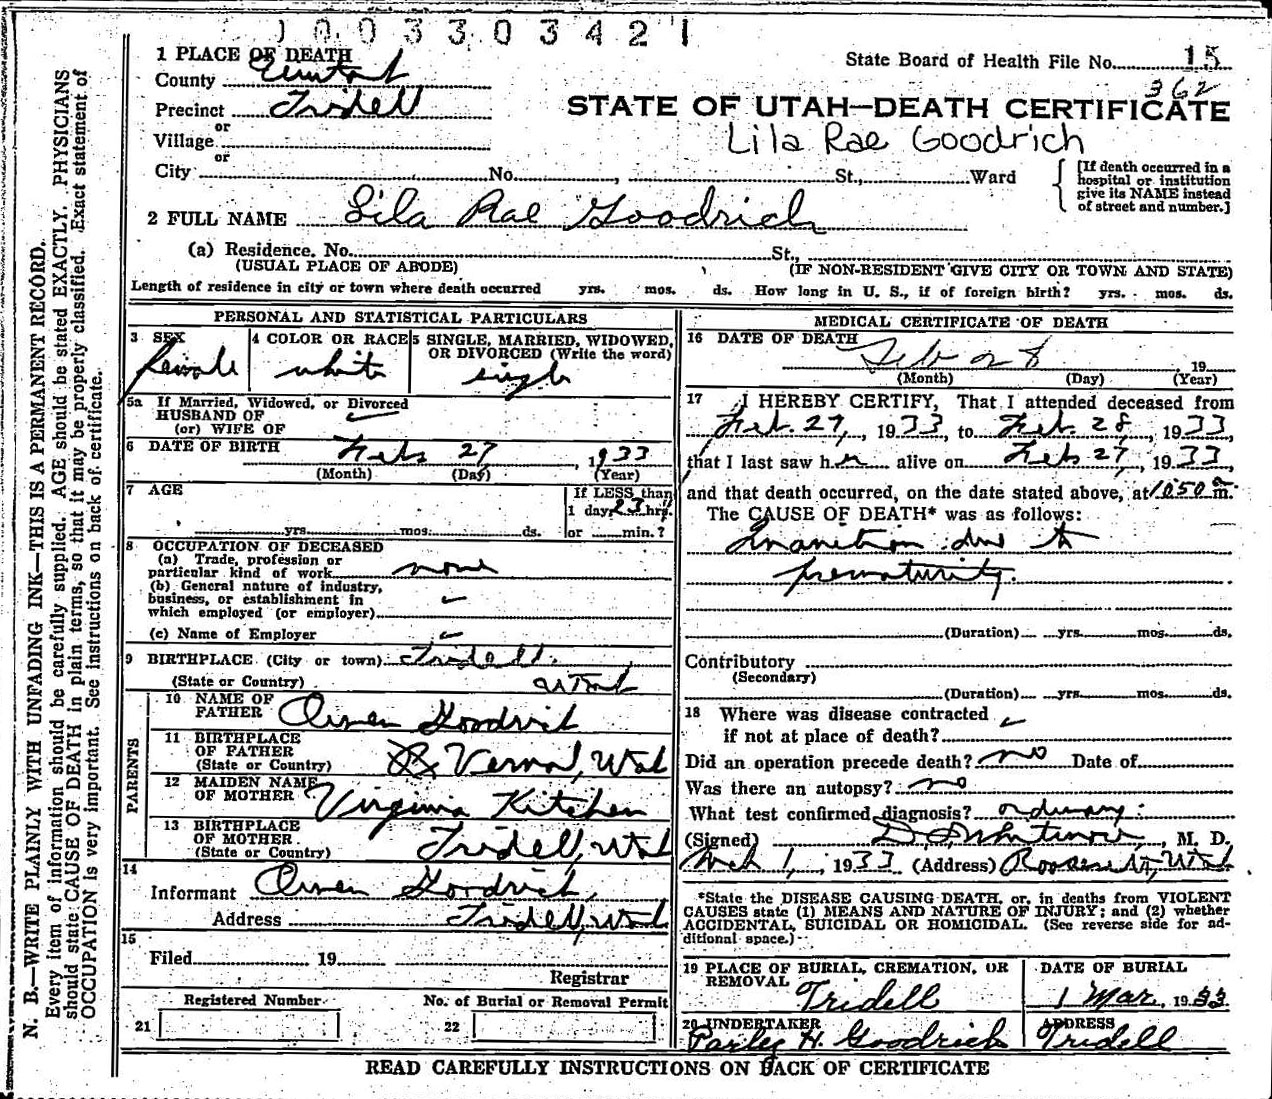 1003303421
State Board of Health File No. 15
362
1 PLACE OF DEATH
County
Precinct Tridell
or
Village
or
City No. St., Ward
STATE OF UTAH—DEATH CERTIFICATE
Lila Rae Goodrich
[If death occurred in a
hospital or institution
give its NAME instead
of street and number.]
2 FULL NAME Lila Rae Goodrich
(a) Residence. No. St.,
(USUAL PLACE OF ABODE) (IF NON-RESIDENT GIVE CITY OR TOWN AND STATE)
Length of residence in city or town where death occurred yrs. mos. ds. How long in U. S., if of foreign birth? yrs. mos. ds.
PERSONAL AND STATISTICAL PARTICULARS
3 SEX 4 COLOR OR RACE 5 SINGLE, MARRIED, WIDOWED,
OR DIVORCED (Write the word)
Female white single
5a If Married, Widowed, or Divorced
HUSBAND OF
(or) WIFE OF
6 DATE OF BIRTH Feb 27, 1933
(Month) (Day) (Year)
7 AGE If LESS than
1 day, 23 hrs.
yrs. mos. ds. or min.?
8 OCCUPATION OF DECEASED
(a) Trade, profession or
particular kind of work none
(b) General nature of industry,
business, or establishment in
which employed (or employer)
(c) Name of Employer
9 BIRTHPLACE (City or town) Tridell
(State or Country) Utah
PARENTS
10 NAME OF
FATHER Owen Goodrich
11 BIRTHPLACE
OF FATHER
(State or Country) Vernal, Utah
12 MAIDEN NAME
OF MOTHER Virginia Kitchen
13 BIRTHPLACE
OF MOTHER
(State or Country) Tridell, Utah
14
Informant Owen Goodrich
Address Tridell, Utah
15
Filed 19
Registrar
Registered Number No. of Burial or Removal Permit
21 22
MEDICAL CERTIFICATE OF DEATH
16 DATE OF DEATH
Feb 28 19
(Month) (Day) (Year)
17 I HEREBY CERTIFY, That I attended deceased from
Feb. 27, 1933, to Feb. 28, 1933,
that I last saw her alive on Feb 27, 1933,
and that death occurred, on the date stated above, at 1050 a m.
The CAUSE OF DEATH* was as follows:
Inanition due to
prematurity.
(Duration) yrs. mos. ds.
Contributory
(Secondary)
(Duration) yrs. mos. ds.
18 Where was disease contracted
if not at place of death?
Did an operation precede death? no Date of
Was there an autopsy? no
What test confirmed diagnosis? ordinary
(Signed) , M. D.
Mch 1, 1933 (Address) Roosevelt, Utah
*State the DISEASE CAUSING DEATH, or, in deaths from VIOLENT
CAUSES state (1) MEANS AND NATURE OF INJURY; and (2) whether
ACCIDENTAL, SUICIDAL OR HOMICIDAL. (See reverse side for ad-
ditional space.)
19 PLACE OF BURIAL, CREMATION, OR
REMOVAL Tridell
DATE OF BURIAL
1 Mar, 1933
20 UNDERTAKER
Parley H. Goodrich
ADDRESS
Tridell
READ CAREFULLY INSTRUCTIONS ON BACK OF CERTIFICATE
N. B.—WRITE PLAINLY WITH UNFADING INK—THIS IS A PERMANENT RECORD.
Every item of information should be carefully supplied. AGE should be stated EXACTLY. PHYSICIANS
should state CAUSE OF DEATH in plain terms, so that it may be properly classified. Exact statement of
OCCUPATION is very important. See instructions on back of certificate.